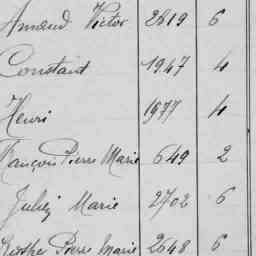 Armand Victor 2819 6
Constant 1947 4
Henri 1977 4
François Pierre Marie 649 2
Julien Marie 2702 6
Pierre Marie 2648 6